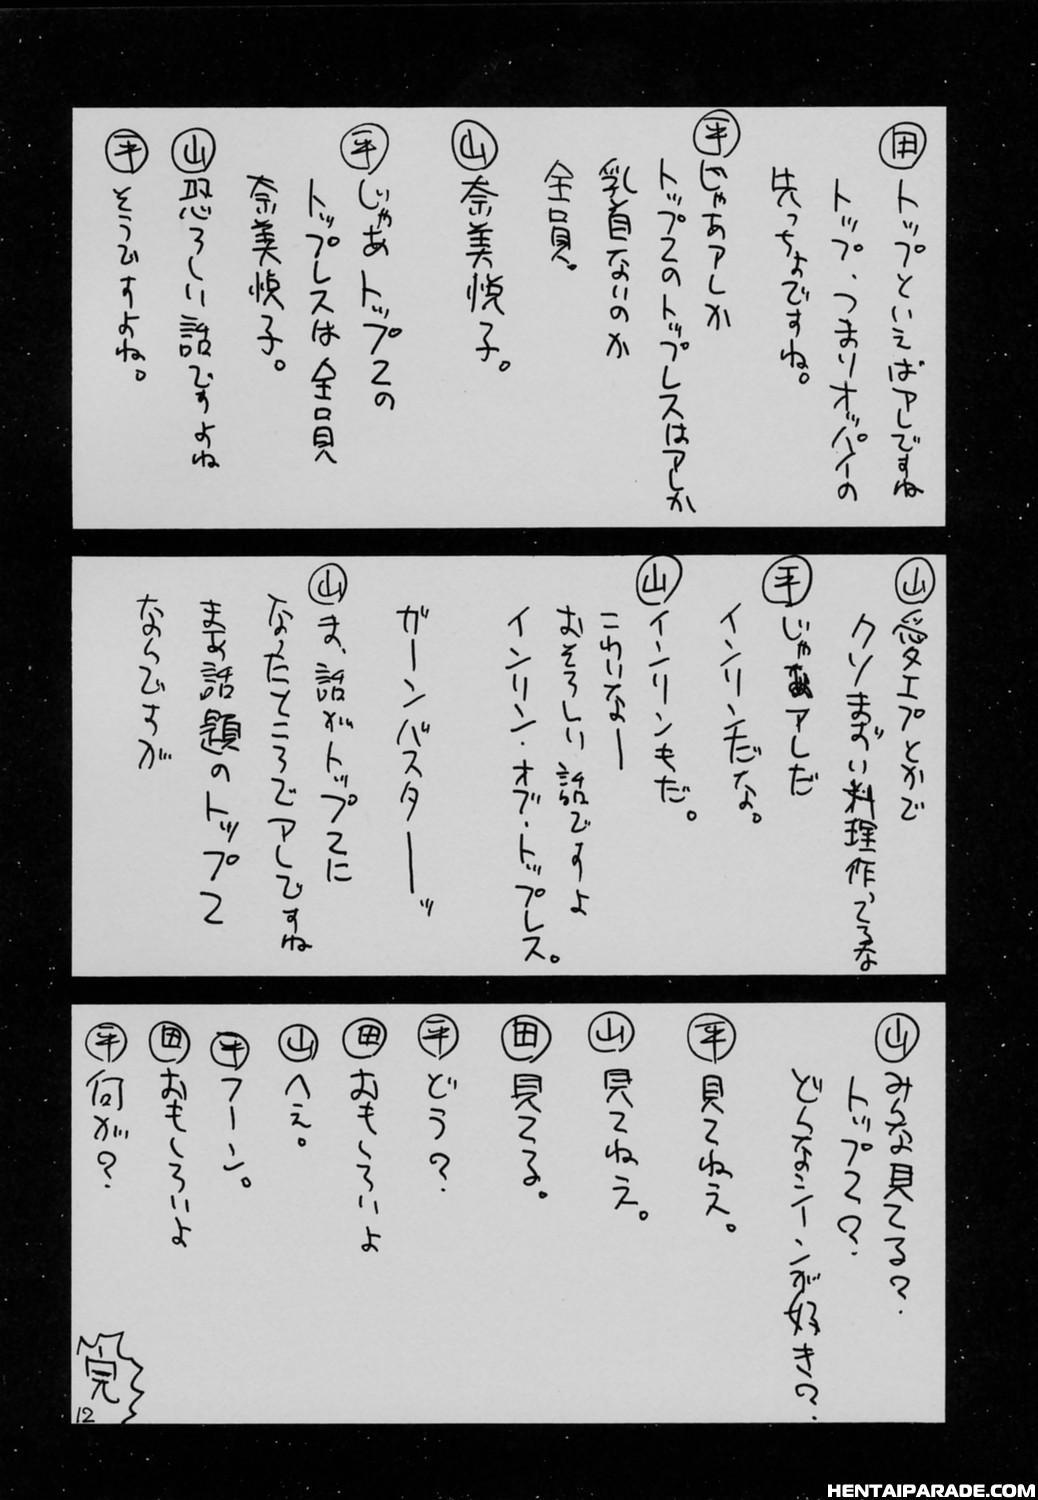 田 トップといえばアレですね
トップ、つまりオッパイの
先っちょですね。
平 じゃあアレか
トップ2のトップレスはアレか
乳首ないのか
全員。
山 奈美悦子。
平 じゃあトップ2の
トップレスは全員
奈美悦子。
山 恐ろしい話ですよね
平 そうですよね。
山 愛エプとかで
クソまずい料理作ってるな
平 じゃあアレだ
インリンだな。
山 インリンもだ。
こわいなー
おそろしい話ですよ
インリン・オブ・トップレス。
ガーンバスターーッ
山 ま、話がトップ2に
なったところでアレですね
まあ話題のトップ2
ならですが
山 みんな見てる?
トップ2?
どんなシーンが好き?
平 見てねえ。
山 見てねえ。
田 見てる。
平 どう?
田 おもしろいよ
山 へえ。
平 フーン。
田 おもしろいよ
平 何が?
完
12
HENTAIPARADE.COM